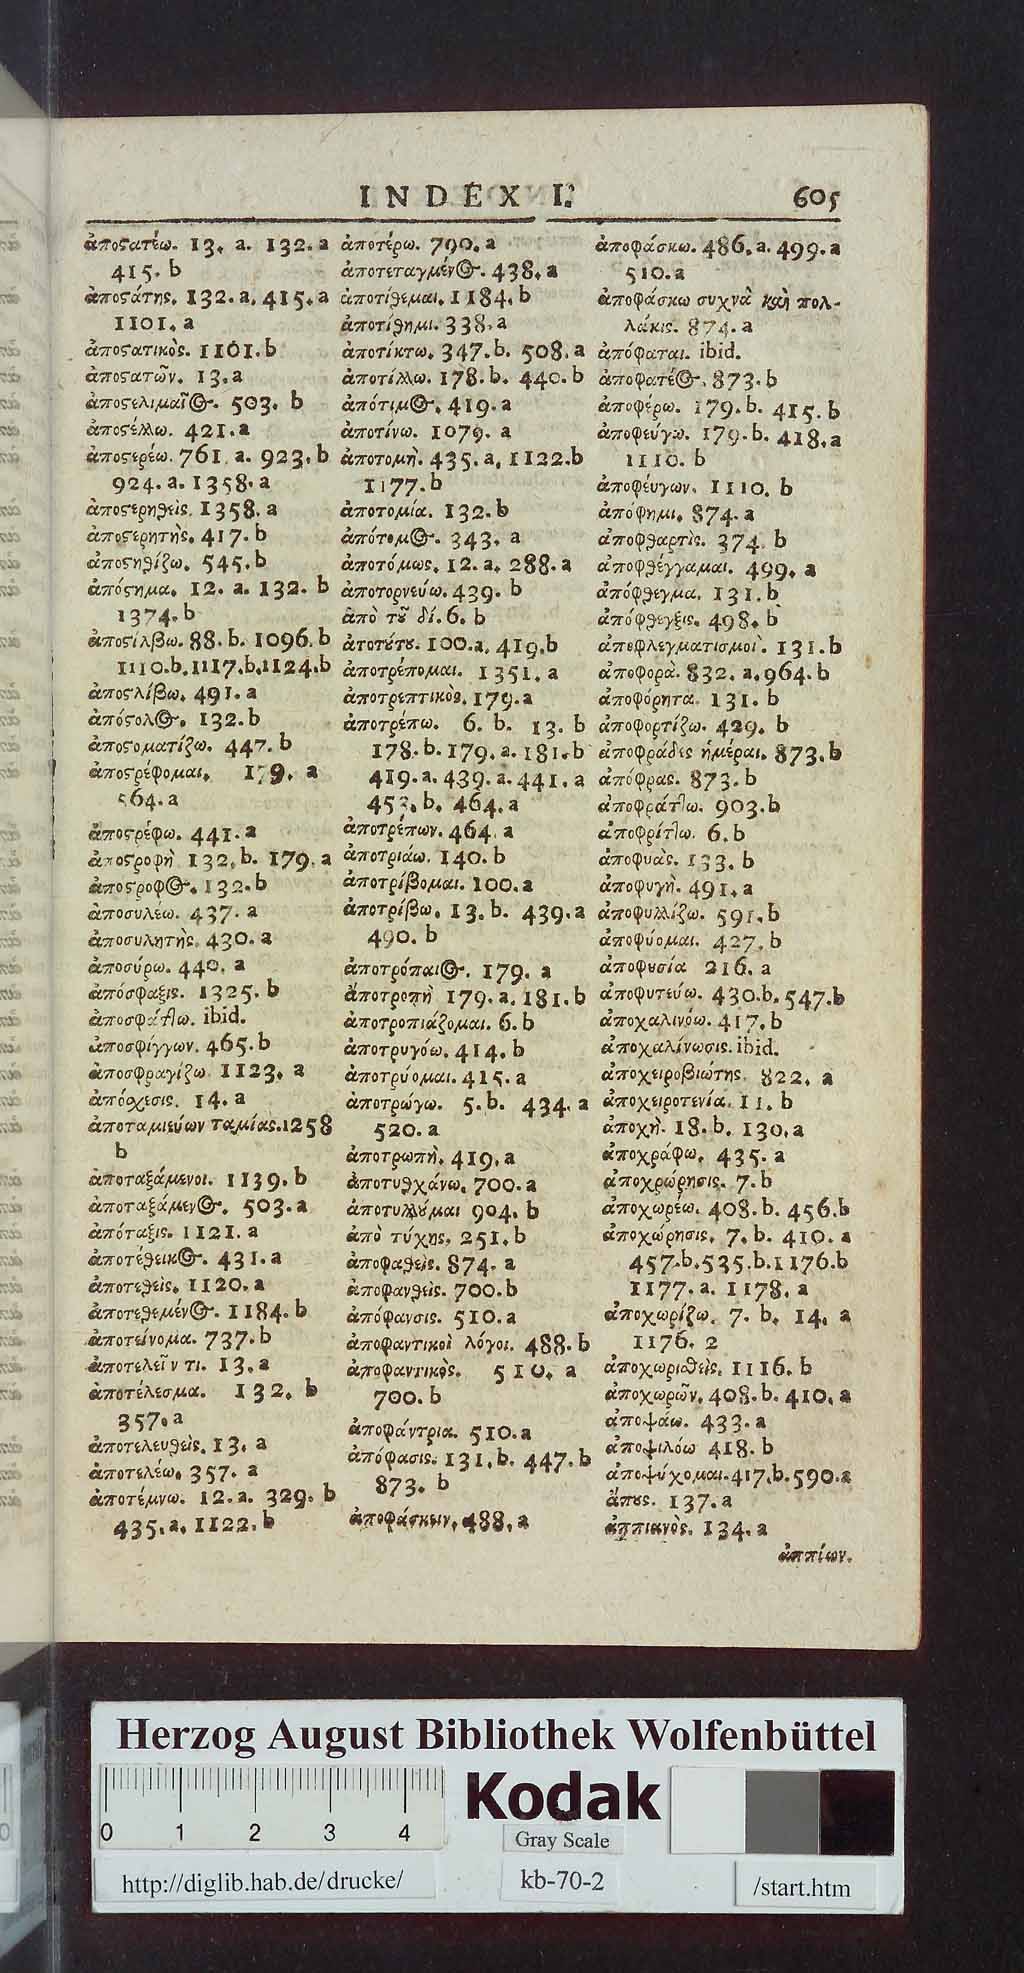 INDEX I.
605
ἀποϛατέω. 13. a. 132. a
415. b
ἀποϛάτης. 132. a. 415. a
1101. a
ἀποϛατικὸς. 1101. b
ἀποϛατῶν. 13. a
ἀποϛελιμαῖος. 503. b
ἀποϛέλλω. 421. a
ἀποϛερέω. 761. a. 923. b
924. a. 1358. a
ἀποϛερηθεὶς. 1358. a
ἀποϛερητὴς. 417. b
ἀποϛηθίζω. 545. b
ἀπόϛημα. 12. a. 132. b
1374. b
ἀποϛίλβω. 88. b. 1096. b
1110. b. 1117. b. 1124. b
ἀποϛλίβω. 491. a
ἀπόϛολος. 132. b
ἀποϛοματίζω. 447. b
ἀποϛρέφομαι. 179. a
564. a
ἀποϛρέφω. 441. a
ἀποϛροφὴ 132. b. 179. a
ἀποϛροφος. 132. b
ἀποσυλέω. 437. a
ἀποσυλητὴς. 430. a
ἀποσύρω. 440. a
ἀπόσφαξις. 1325. b
ἀποσφάττω. ibid.
ἀποσφίγγων. 465. b
ἀποσφραγίζω 1123. a
ἀπόσχεσις. 14. a
ἀποταμιεύων ταμίας. 1258
b
ἀποταξάμενοι. 1139. b
ἀποταξάμενος. 503. a
ἀπόταξις. 1121. a
ἀποτέθεικος. 431. a
ἀποτεθεὶς. 1120. a
ἀποτεθεμένος. 1184. b
ἀποτείνομα. 737. b
ἀποτελεῖν τι. 13. a
ἀποτέλεσμα. 132. b
357. a
ἀποτελευθεὶς. 13. a
ἀποτελέω. 357. a
ἀποτέμνω. 12. a. 329. b
435. a. 1122. b
ἀποτέρω. 790. a
ἀποτεταγμένος. 438. a
ἀποτίθεμαι. 1184. b
ἀποτίθημι. 338. a
ἀποτίκτω. 347. b. 508. a
ἀποτίλλω. 178. b. 440. b
ἀπότιμος. 419. a
ἀποτίνω. 1079. a
ἀποτομὴ. 435. a. 1122. b
1177. b
ἀποτομία. 132. b
ἀπότομος. 343. a
ἀποτόμως. 12. a. 288. a
ἀποτορνεύω. 439. b
ἀπὸ τȣ͂ δί. 6. b
ἀτοτȣ́τȣ. 100. a. 419. b
ἀποτρέπομαι. 1351. a
ἀποτρεπτικὸς. 179. a
ἀποτρέπω. 6. b. 13. b
178. b. 179. a. 181. b
419. a. 439. a. 441. a
453. b. 464. a
ἀποτρέπων. 464. a
ἀποτριάω. 140. b
ἀποτρίβομαι. 100. a
ἀποτρίβω. 13. b. 439. a
490. b
ἀποτρόπαιος. 179. a
ἀποτροπὴ 179. a. 181. b
ἀποτροπιάζομαι. 6. b
ἀποτρυγόω. 414. b
ἀποτρύομαι. 415. a
ἀποτρώγω. 5. b. 434. a
520. a
ἀποτρωπὴ. 419. a
ἀποτυθχάνω. 700. a
ἀποτυλλȣ́μαι 904. b
ἀπὸ τύχης. 251. b
ἀποφαθεὶς. 874. a
ἀποφανθεὶς. 700. b
ἀπόφανσις. 510. a
ἀποφαντικοὶ λόγοι. 488. b
ἀποφαντικὸς. 510. a
700. b
ἀποφάντρια. 510. a
ἀπόφασις. 131. b. 447. b
873. b
ἀποφάσκειν. 488. a
ἀποφάσκω. 486. a. 499. a
510. a
ἀποφάσκω συχνὰ καὶ πολ-
λάκις. 874. a
ἀπόφαται. ibid.
ἀποφατέος. 873. b
ἀποφέρω. 179. b. 415. b
ἀποφεύγω. 179. b. 418. a
1110. b
ἀποφέυγων. 1110. b
ἀπόφημι. 874. a
ἀποφθαρτὶς. 374. b
ἀποφθέγγαμαι. 499. a
ἀπόφθεγμα. 131. b
ἀπόφθεγξις. 498. b
ἀποφλεγματισμοὶ. 131. b
ἀποφορὰ. 832. a. 964. b
ἀποφόρητα. 131. b
ἀποφορτίζω. 429. b
ἀποφράδες ἡμέραι. 873. b
ἀπόφρας. 873. b
ἀποφράττω. 903. b
ἀποφρίττω. 6. b
ἀποφυὰς. 133. b
ἀποφυγὴ. 491. a
ἀποφυλλίζω. 591. b
ἀποφύομαι. 427. b
ἀποφυσία 216. a
ἀποφυτεύω. 430. b. 547. b
ἀποχαλινόω. 417. b
ἀποχαλίνωσις. ibid.
ἀποχειροβιώτης. 822. a
ἀποχειροτενία. 11. b
ἀποχὴ. 18. b. 130. a
ἀποχράφω. 435. a
ἀποχρώρησις. 7. b
ἀποχωρέω. 408. b. 456. b
ἀποχώρησις. 7. b. 410. a
457. b. 535. b. 1176. b
1177. a. 1178. a
ἀποχωρίζω. 7. b. 14. a
1176. 2
ἀποχωριθεὶς. 1116. b
ἀποχωρῶν. 408. b. 410. a
ἀποψάω. 433. a
ἀποψιλόω 418. b
ἀποψύχομαι. 417. b. 590. a
ἄπȣς. 137. a
ἀππιανὸς. 134. a
ἀππίων.
Herzog August Bibliothek Wolfenbüttel
0 1 2 3 4
Kodak
Gray Scale
http://diglib.hab.de/drucke/
kb-70-2
/start.htm